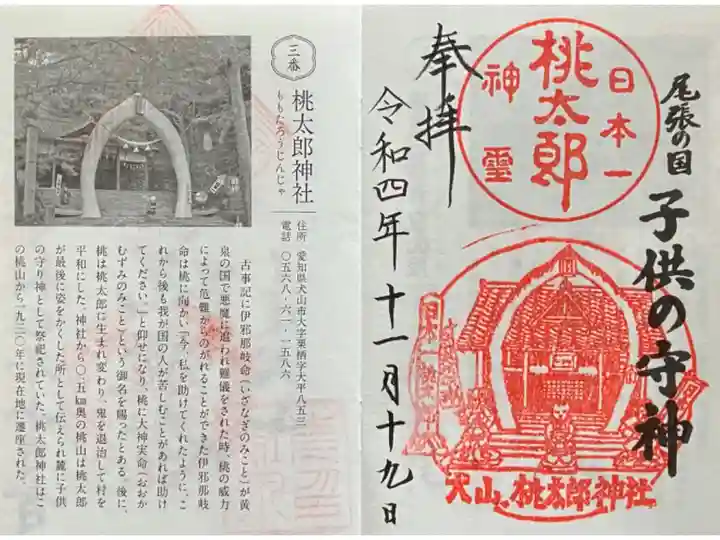 三番
桃太郎神社
ももたろうじんじゃ
住所 愛知県犬山市大字栗栖字大平八五三
電話 〇五六八‐六一‐一五八六
古事記に伊邪那岐命(いざなぎのみこと)が黄
泉の国で悪魔に追われ難儀をされた時、桃の威力
によって危難からのがれることができた伊邪那岐
命は桃に向かい「今、私を助けてくれたように、こ
れから後も我が国の人が苦しむことがあれば助け
てください。」と仰せになり、桃に大神実命(おおか
むずみのみこと)という御名を賜ったとある。後に、
桃は桃太郎に生まれ変わり、鬼を退治して村を
平和にした。神社から〇・五㎞奥の桃山は桃太郎
が最後に姿をかくした所として伝えられ麓に子供
の守り神として祭祀されていた。桃太郎神社はこ
の桃山から一九三〇年に現在地に遷座された。
尾張の国
子供の守神
日本一
桃太郎
神霊
奉拝
令和四年十一月十九日
犬山 桃太郎神社